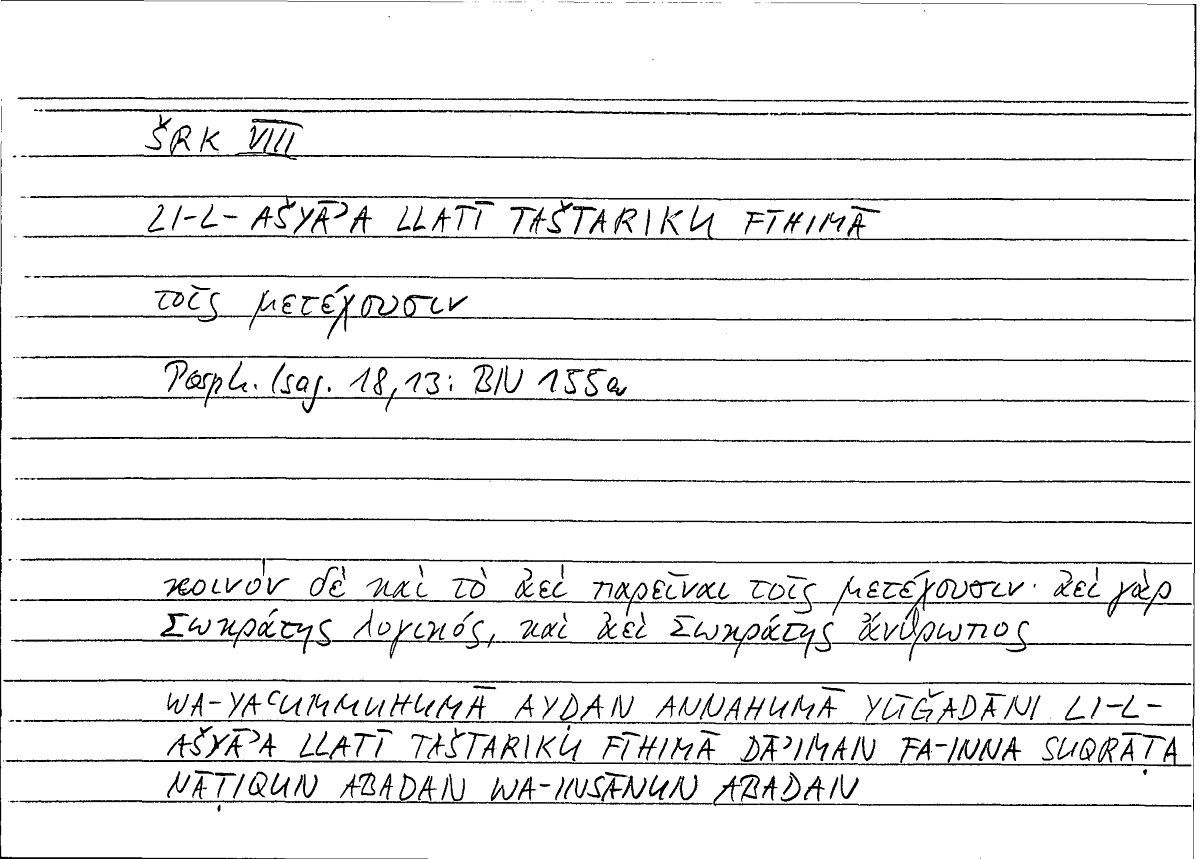 ŠRK VIII
LI-L-AŠYĀʾA LLATĪ TAŠTARIKU FĪHIMĀ
τοῖς μετέχουσιν
Porph. Isag. 18,13: BN 155a
κοινὸν δὲ καὶ τὸ ἀεὶ παρεῖναι τοῖς μετέχουσιν· ἀεὶ γὰρ
Σωκράτης λογικός, καὶ ἀεὶ Σωκράτης ἄνθρωπος
WA-YAʿUMMUHUMĀ AYḌAN ANNAHUMĀ YŪǦADĀNI LI-L-
AŠYĀʾA LLATĪ TAŠTARIKU FĪHIMĀ DĀʾIMAN FA-INNA SUQRĀṬA
NĀṬIQUN ABADAN WA-INSĀNUN ABADAN